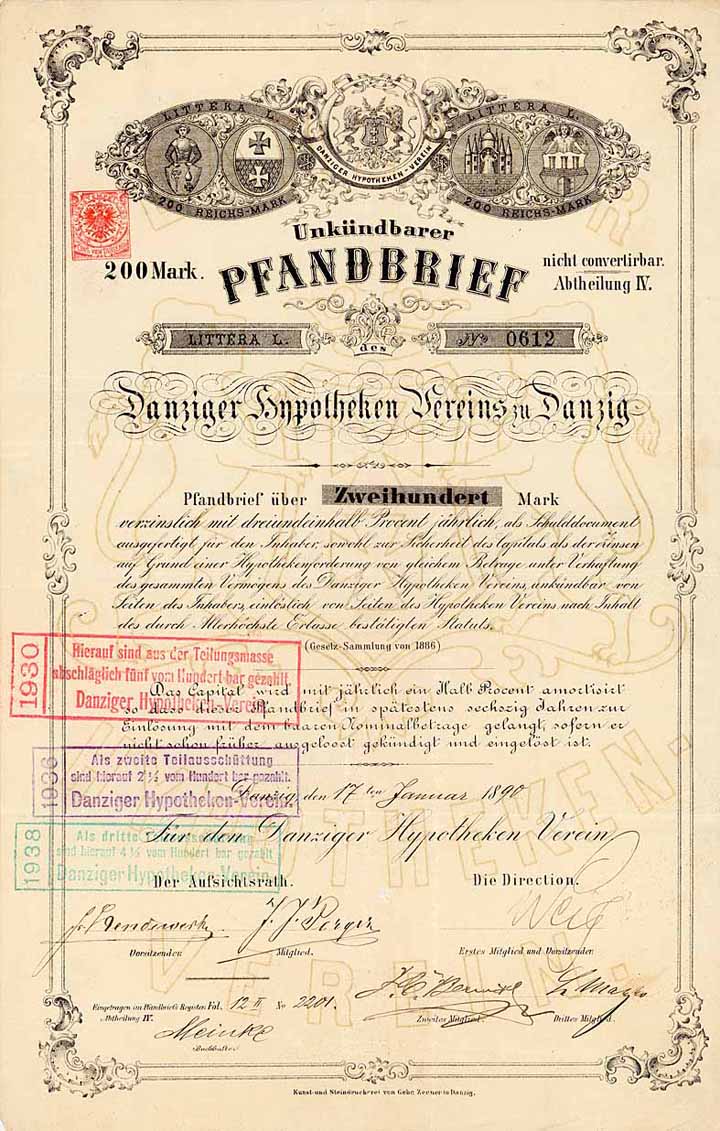 LITTERA L.
200 REICHS-MARK
DANZIGER HYPOTHEKEN-VEREIN
LITTERA L.
200 REICHS-MARK
Unkündbarer
200 Mark.
PFANDBRIEF
nicht convertirbar.
Abtheilung IV.
LITTERA L.
des
No 0612
Danziger Hypotheken Vereins zu Danzig
Pfandbrief über Zweihundert Mark
verzinslich mit dreiundeinhalb Procent jährlich, als Schulddocument
ausgefertigt für den Inhaber, sowohl zur Sicherheit des Capitals als der Zinsen
auf Grund einer Hypothekenforderung von gleichem Betrage unter Verhaftung
des gesammten Vermögens des Danziger Hypotheken Vereins, unkündbar von
Seiten des Inhabers, einlöslich von Seiten des Hypotheken Vereins nach Inhalt
des durch Allerhöchste Erlasse bestätigten Statuts.
(Gesetz-Sammlung von 1886)
1930
Hierauf sind aus der Teilungsmasse
abschläglich fünf vom Hundert bar gezahlt.
Danziger Hypotheken-Verein
Das Capital wird mit jährlich ein Halb Procent amortisirt
so dass dieser Pfandbrief in spätestens sechszig Jahren zur
Einlösung mit dem baaren Nominalbetrage gelangt, sofern er
nicht schon früher ausgeloost gekündigt und eingelöst ist.
1936
Als zweite Teilausschüttung
sind hierauf 2 ½ vom Hundert bar gezahlt.
Danziger Hypotheken-Verein.
Danzig, den 17ten Januar 1890
1938
Als dritte
sind hierauf 4 ½ vom Hundert bar gezahlt
Danziger Hypotheken-Verein
Für den Danziger Hypotheken Verein
Der Aufsichtsrath.
Die Direction.
Vorsitzender
Mitglied.
Erstes Mitglied und Vorsitzender
Eingetragen im Pfandbriefs Register Fol. 12 II No 2201.
Abtheilung IV.
Zweites Mitglied.
Drittes Mitglied.
Meinke
Buchhalter
Kunst- und Steindruckerei von Gebr. Zeuner in Danzig.